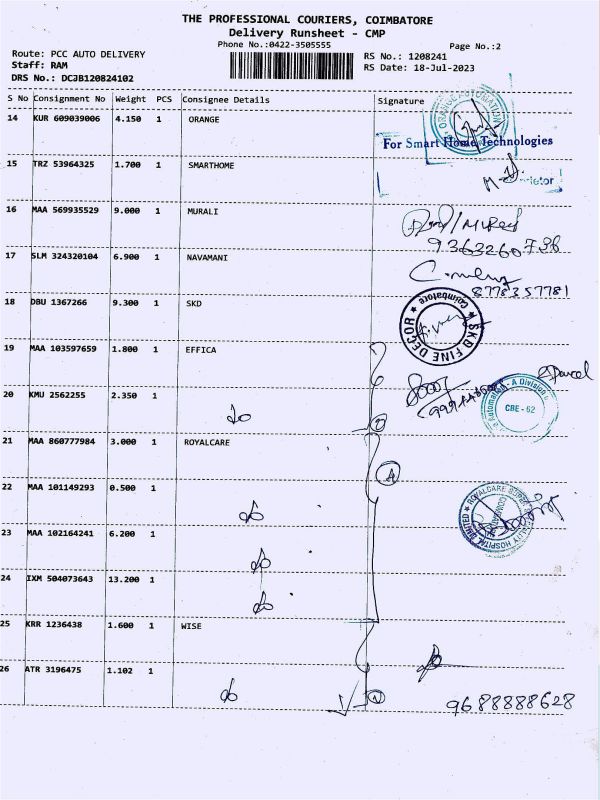 THE PROFESSIONAL COURIERS, COIMBATORE
Delivery Runsheet - CMP
Phone No.:0422-3505555
Page No.:2
Route: PCC AUTO DELIVERY
RS No.: 1208241
Staff: RAM
RS Date: 18-Jul-2023
DRS No.: DCJB120824102
S No Consignment No Weight PCS Consignee Details Signature
14 KUR 609039006 4.150 1 ORANGE
ORANGE AUTOMATION
For Smart Home Technologies
15 TRZ 53964325 1.700 1 SMARTHOME
16 MAA 569935529 9.000 1 MURALI
9363260736
17 SLM 324320104 6.900 1 NAVAMANI
8778357781
18 DBU 1367266 9.300 1 SKD
SKD FINE DECOR Coimbatore
19 MAA 103597659 1.800 1 EFFICA
20 KMU 2562255 2.350 1
Automation - A Division
CBE - 62
21 MAA 860777984 3.000 1 ROYALCARE
22 MAA 101149293 0.500 1
ROYALCARE SUPER SPECIALITY HOSPITAL LIMITED
COIMBATORE
23 MAA 102164241 6.200 1
24 IXM 504073643 13.200 1
25 KRR 1236438 1.600 1 WISE
26 ATR 3196475 1.102 1
9688888628